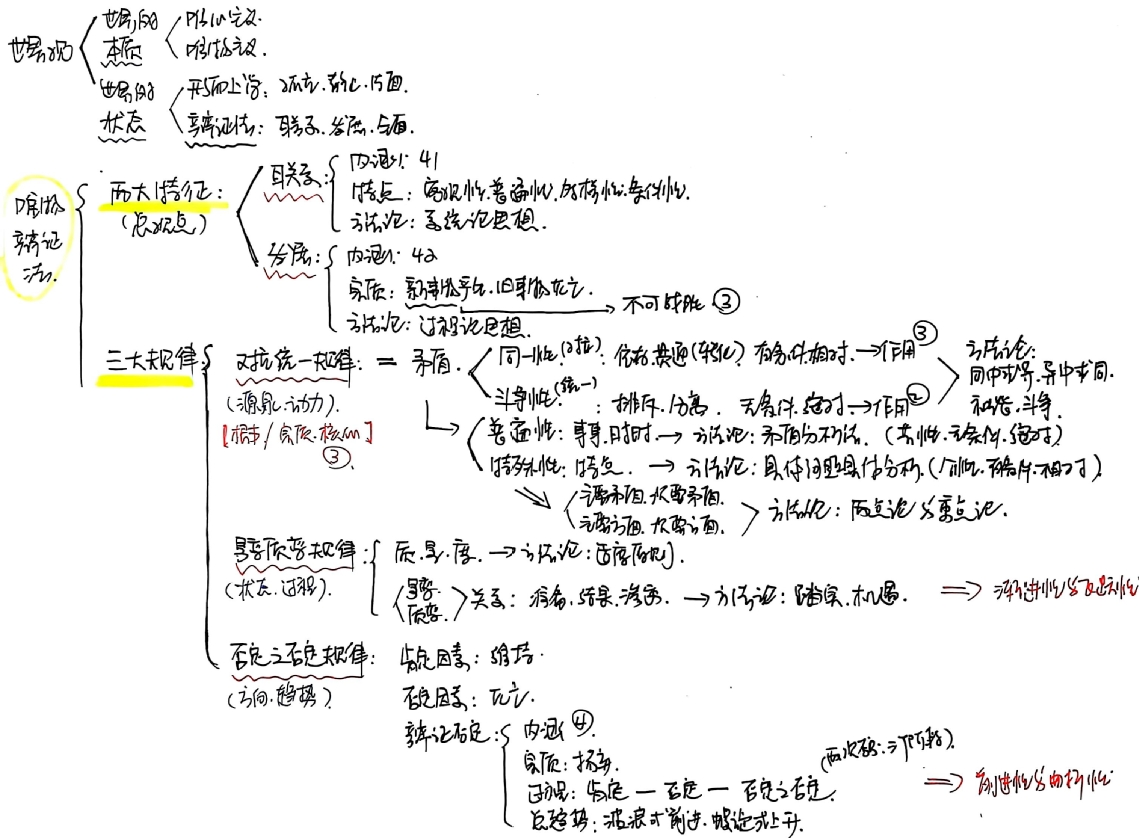 世界观
世界的本质
唯心主义.
唯物主义.
世界的状态
形而上学: 孤立.静止.片面.
辩证法: 联系.发展.全面.
唯物辩证法.
两大特征: (总观点)
联系:
内涵: 41
特点: 客观性.普遍性.多样性.条件性.
方法论: 系统论思想.
发展:
内涵: 42
实质: 新事物产生.旧事物灭亡. → 不可战胜③
方法论: 过程论思想.
三大规律:
对立统一规律: = 矛盾.
(源泉.动力).
[根本/实质.核心]③.
同一性(对立): 依存.共通(转化) 有条件.相对.→作用③
斗争性(统一): 排斥.分离. 无条件.绝对.→作用②
方法论:
同中求异.异中求同.
和谐.斗争.
普遍性: 事事.时时.→ 方法论: 矛盾分析法. (共性.无条件.绝对)
特殊性: 特点. → 方法论: 具体问题具体分析.(个性.有条件.相对)
主要矛盾.次要矛盾.
主要方面.次要方面.
方法论: 两点论与重点论.
量变质变规律:
(状态.过程).
质.量.度. → 方法论: 适度原则.
量变.
质变.
关系: 准备.结果.渗透. → 方法论: 踏实.机遇. ⇒ 渐进性与飞跃性
否定之否定规律:
(方向.趋势).
肯定因素: 维持.
否定因素: 灭亡.
辩证否定:
内涵④.
实质: 扬弃.
过程: 肯定 — 否定 — 否定之否定. (两次否定.三个阶段).
总趋势: 波浪式前进.螺旋式上升. ⇒ 前进性与曲折性